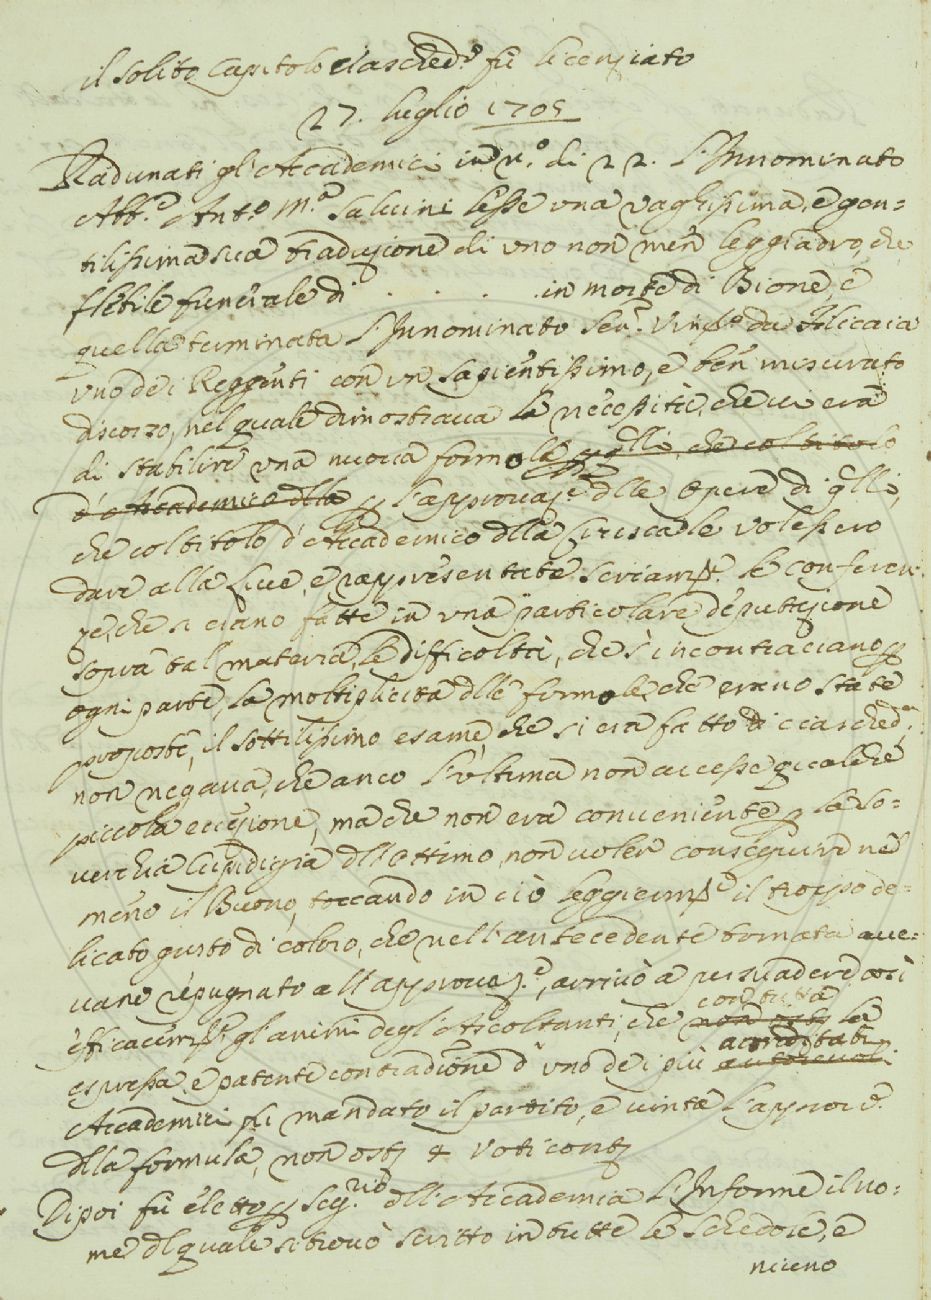 il solito Capitolo ciasched.º fù licenziato
27. luglio 1705
Radunati gl'Accademici in n.º di 22. L'Innominato
Abb.e Ant.º M.a Salvini lesse una vaghissima, e gen-
tilissima sua traduzione di uno non men leggiadro, che
flebile funerale di . . . . . in morte di Bione e
quella terminata L'Innominato Sen.r Vinc.º da Filicaia
uno dei Reggenti con un sapientissimo, e ben misurato
discorso, nel quale dimostrava la necessità, che vi era
di stabilire una nuova formola p quelli, che col titolo
d'Accademico della p l'approvaz.e dlle Opere di qlli,
che col titolo d'Accademico dlla Crusca le volessero
dare alla luce, e rappresentate seriam.te le conferen-
ze, che si erano fatte in una particolare deputazione
sopra tal materia, le difficoltà, che s'incontravano p
ogni parte, la moltiplicità dlle formole, che erano state
proposte, il sottilissimo esame, che si era fatto di ciasched.a,
non negava, che anco l'ultima non avesse qualche
piccola eccezione, ma che non era conveniente p la so-
verchia cupidigia dll'ottimo, non voler conseguire ne
meno il Buono, toccando in ciò leggierm.te il troppo de-
licato gusto di coloro, che nell'antecedente tornata ave-
vano repugnato all'approvaz.e, arrivò a persuadere così
efficacem.te gl'animi degl'Ascoltanti, che non ost. con tutta la
espressa e patente contradizione d'uno dei più autorevoli accreditati
Accademici fù mandato il partito, e vinta l'approv.e
dlla formula, non ost. 4 voti cont.
Dipoi fù eletto p Seg.rio dll'Accademia L'Informe il no-
me dl quale si trovò scritto in tutte le schedole, e
niuno